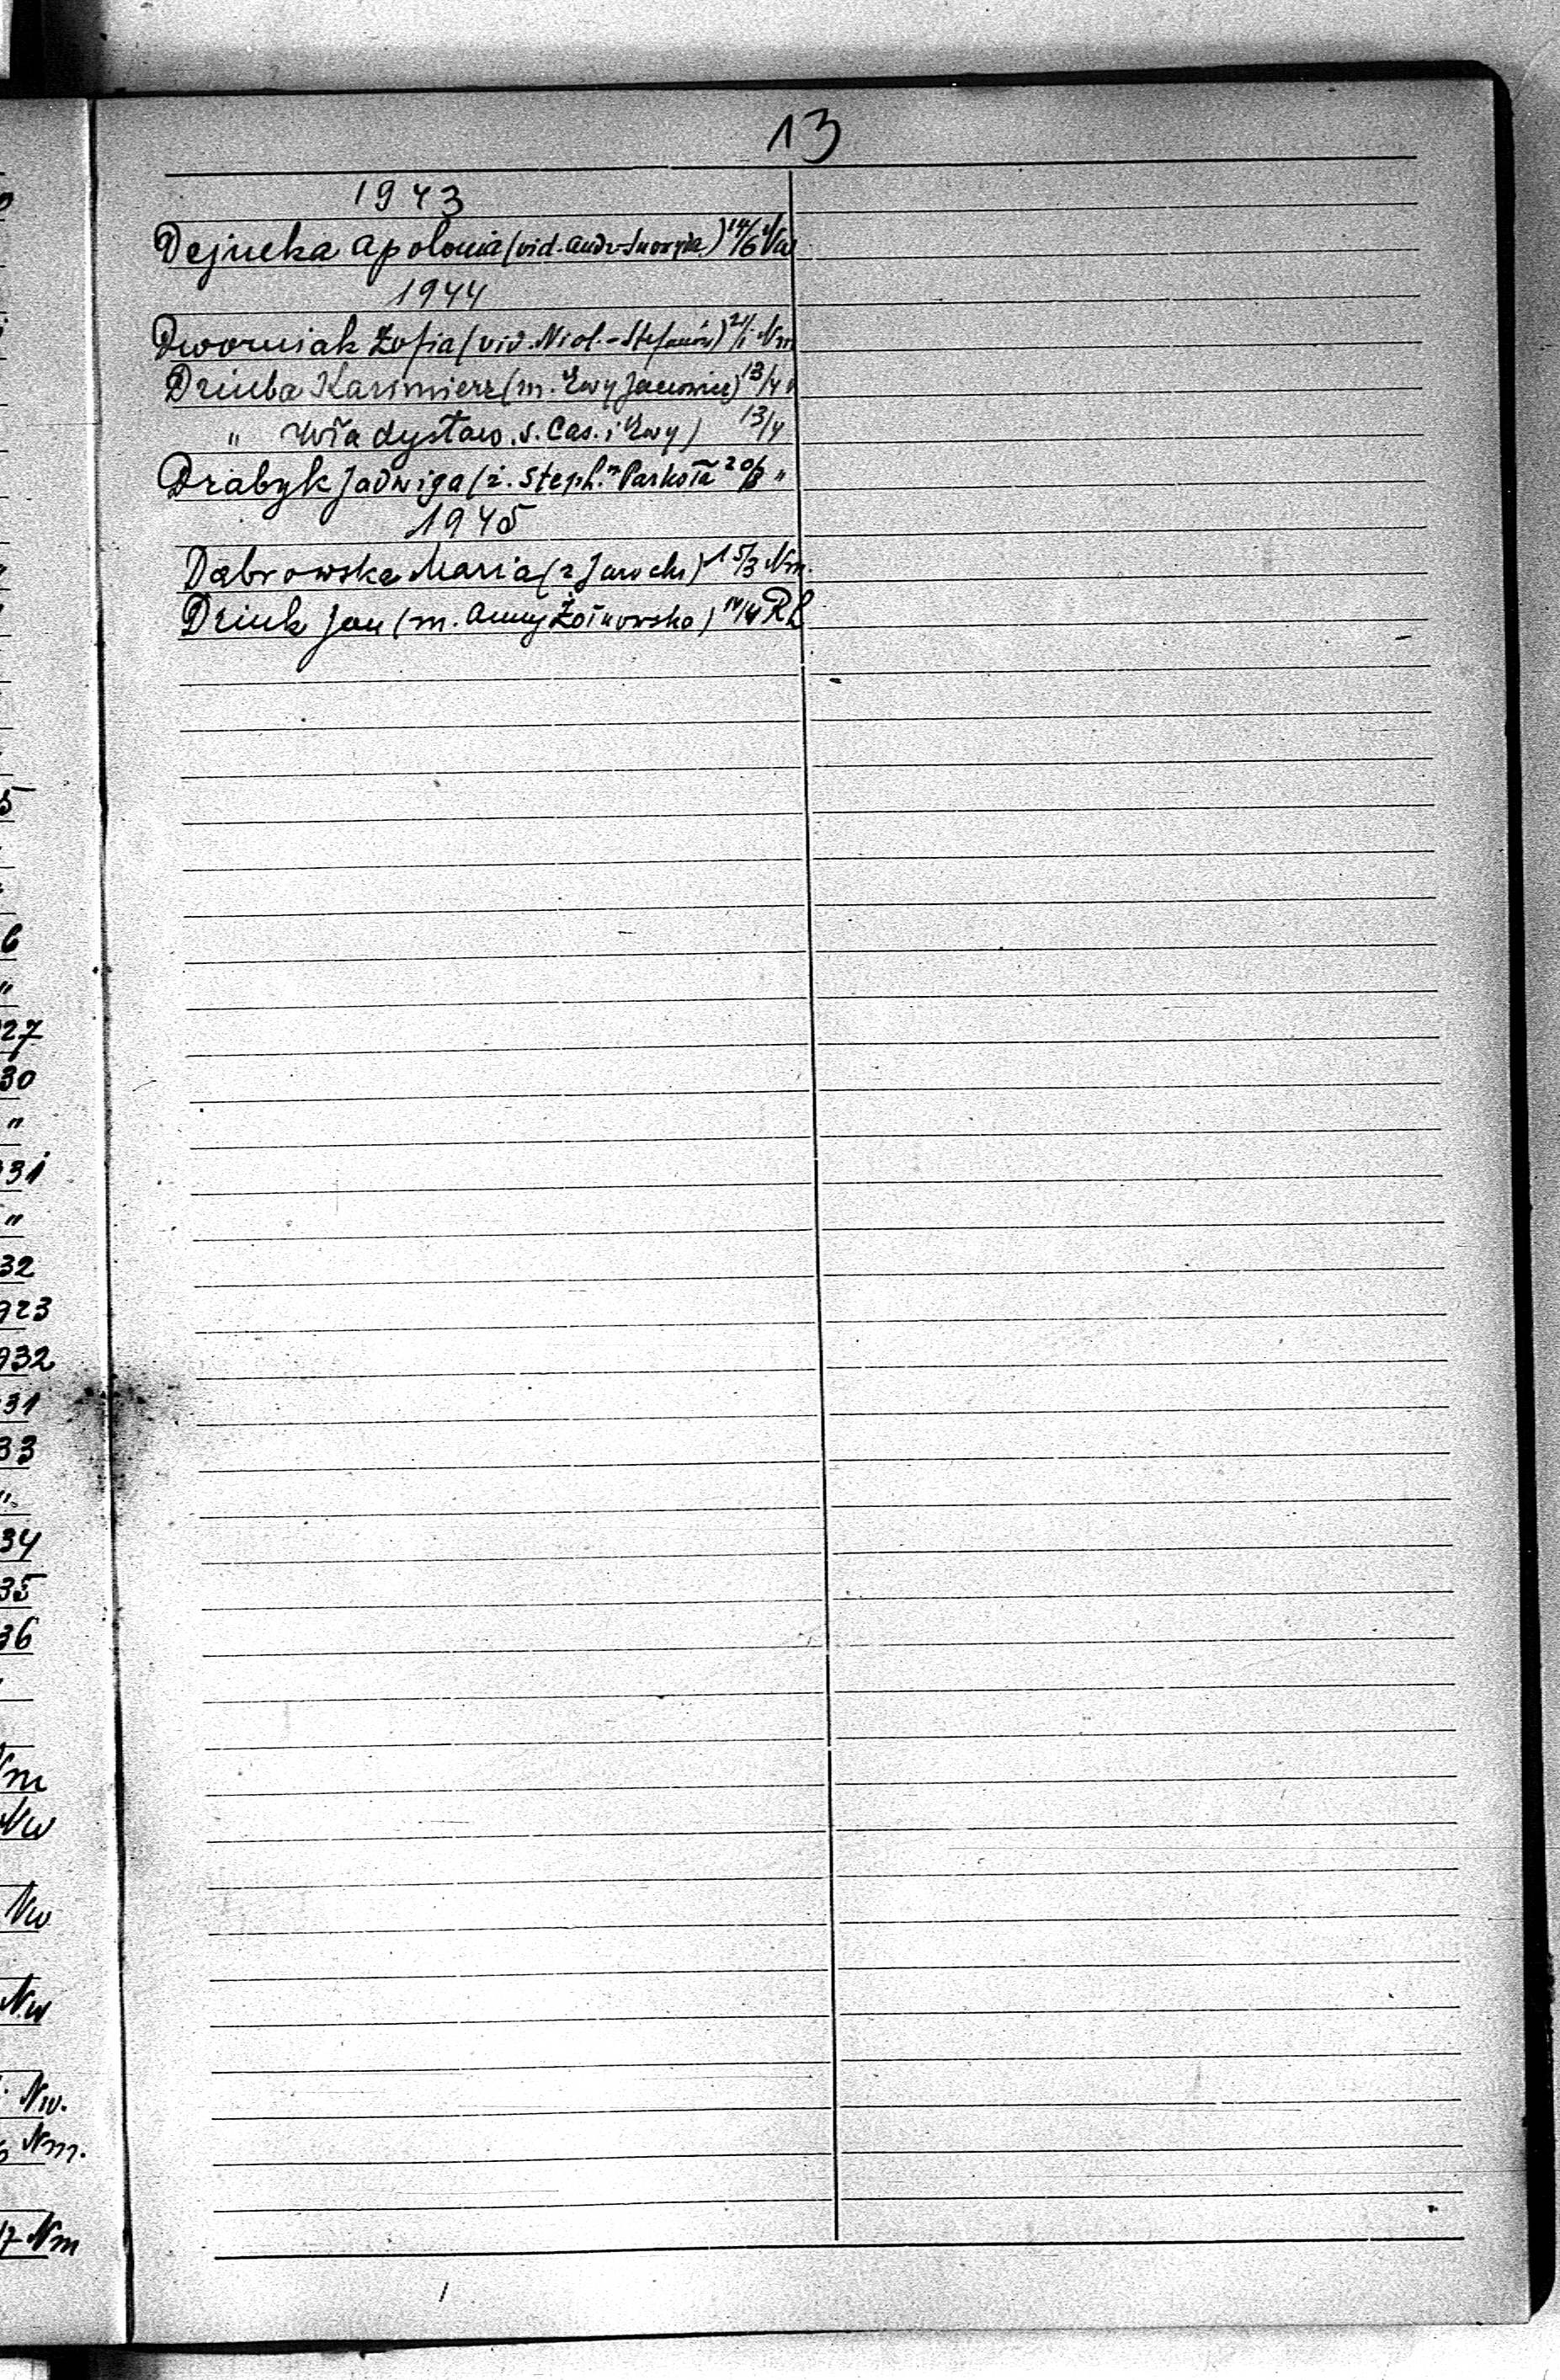 13
1943
Dejneka Apolonia (vid. Andr. ) 14/6 Nw
1944
Dworniak Zofia (vid. Nicol. - Stefanów) 2/1 Nm
Dziuba Kazimierz (m. Ewy ) 13/4 "
" Władysław. s. Cas. i Ewy) 13/4
Drabyk Jadwiga (ż. Steph. " Parkoła 20/8 "
1945
Dąbrowska Maria (z Jaroch) 15/3 Nm.
Dziuk Jan (m. Anny Żołnowska) 14/4 RL
5
6
"
27
30
"
31
"
32
923
932
31
33
"
34
35
36
Nm
Nw
Nw
Nw
Nw.
Nm.
17 Nm